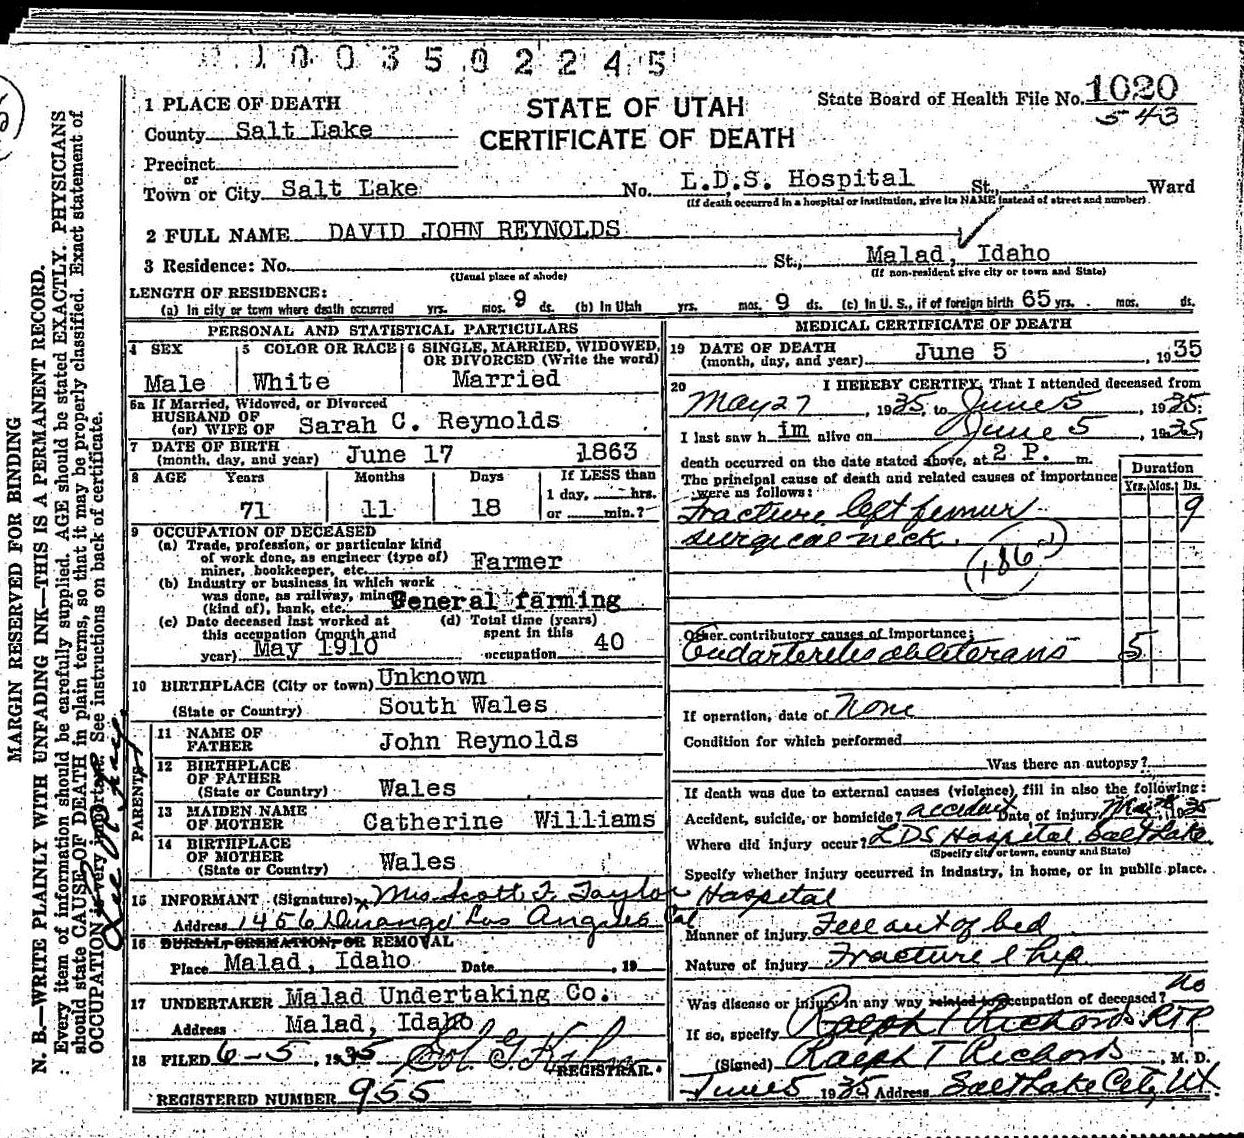 1003502245
1 PLACE OF DEATH
STATE OF UTAH
CERTIFICATE OF DEATH
State Board of Health File No. 1020
543
County Salt Lake
Precinct
or
Town or City Salt Lake No. L.D.S. Hospital St., Ward
(If death occurred in a hospital or institution, give its NAME instead of street and number)
2 FULL NAME DAVID JOHN REYNOLDS
3 Residence: No. St., Malad, Idaho
(Usual place of abode) (If non-resident give city or town and State)
LENGTH OF RESIDENCE:
(a) In city or town where death occurred yrs. mos. 9 ds. (b) In Utah yrs. mos. 9 ds. (c) In U. S., if of foreign birth 65 yrs. mos. ds.
PERSONAL AND STATISTICAL PARTICULARS
4 SEX 5 COLOR OR RACE 6 SINGLE, MARRIED, WIDOWED, OR DIVORCED (Write the word)
Male White Married
5a If Married, Widowed, or Divorced
HUSBAND OF
(or) WIFE OF Sarah C. Reynolds
7 DATE OF BIRTH
(month, day, and year) June 17 1863
8 AGE Years Months Days If LESS than
1 day, hrs.
71 11 18 or min.?
9 OCCUPATION OF DECEASED
(a) Trade, profession, or particular kind
of work done, as engineer (type of)
miner, bookkeeper, etc. Farmer
(b) Industry or business in which work
was done, as railway, mine
(kind of), bank, etc. General farming
(c) Date deceased last worked at
this occupation (month and
year) May 1910
(d) Total time (years)
spent in this
occupation 40
10 BIRTHPLACE (City or town) Unknown
(State or Country) South Wales
PARENTS
11 NAME OF
FATHER John Reynolds
12 BIRTHPLACE
OF FATHER
(State or Country) Wales
13 MAIDEN NAME
OF MOTHER Catherine Williams
14 BIRTHPLACE
OF MOTHER
(State or Country) Wales
15 INFORMANT (Signature) x Mrs Scott F. Taylor
Address 1456 Durango Los Angeles Cal
16 BURIAL, CREMATION, OR REMOVAL
Place Malad, Idaho Date , 19
17 UNDERTAKER Malad Undertaking Co.
Address Malad, Idaho
18 FILED 6-5, 1935
REGISTRAR.
REGISTERED NUMBER 955
MEDICAL CERTIFICATE OF DEATH
19 DATE OF DEATH
(month, day, and year) June 5, 1935
20 I HEREBY CERTIFY, That I attended deceased from
May 27, 1935, to June 5, 1935.
I last saw him alive on June 5, 1935,
death occurred on the date stated above, at 2 P. m.
The principal cause of death and related causes of importance
were as follows:
Duration
Yrs. Mos. Ds.
Fracture left femur 9
surgical neck.
186
Other contributory causes of importance:
Endarteretis obliterans 5
If operation, date of None
Condition for which performed
Was there an autopsy?
If death was due to external causes (violence), fill in also the following:
Accident, suicide, or homicide? accident Date of injury May 1935
Where did injury occur? LDS Hospital Salt Lake
(Specify city or town, county and State)
Specify whether injury occurred in industry, in home, or in public place.
Hospital
Manner of injury Fell out of bed
Nature of injury Fracture l hip
Was disease or injury in any way related to occupation of deceased? no
If so, specify Ralph T Richards RTR
(Signed) Ralph T Richards, M. D.
June 5 1935 Address Salt Lake City, Ut
MARGIN RESERVED FOR BINDING
N. B.—WRITE PLAINLY WITH UNFADING INK—THIS IS A PERMANENT RECORD.
Every item of information should be carefully supplied. AGE should be stated EXACTLY. PHYSICIANS
should state CAUSE OF DEATH in plain terms, so that it may be properly classified. Exact statement of
OCCUPATION is very important. See instructions on back of certificate.